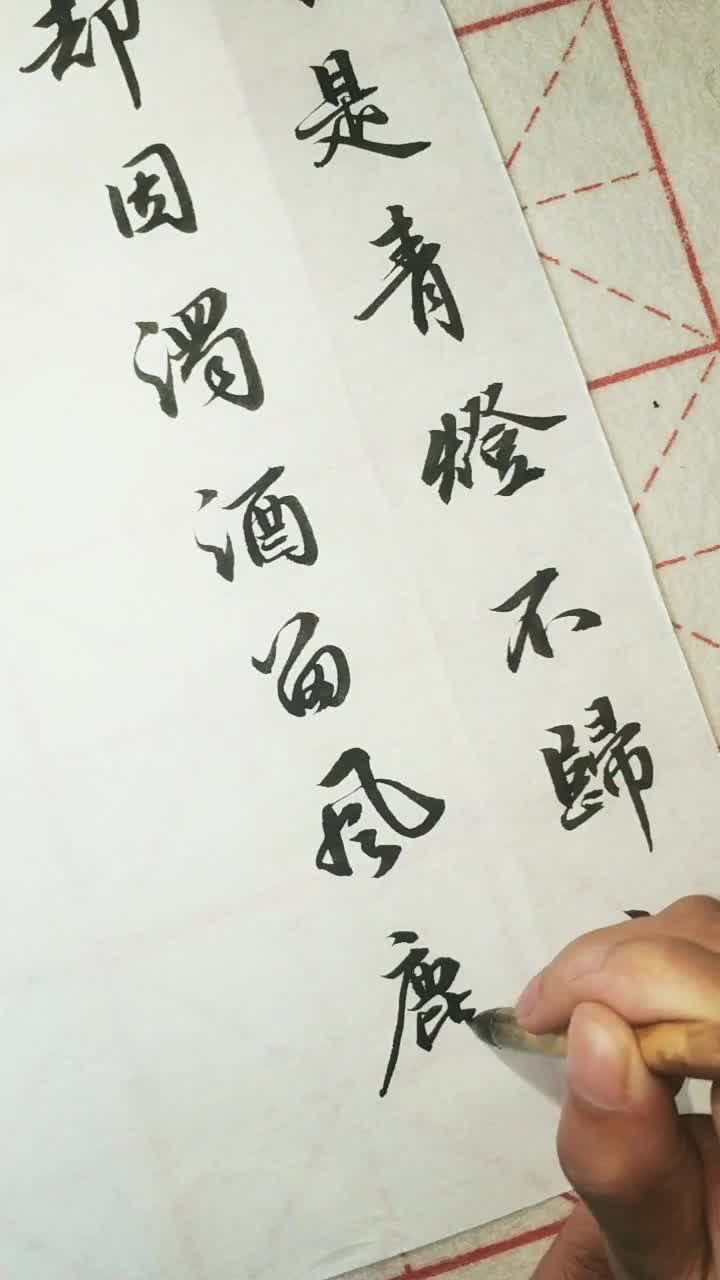 是青燈不歸
却因濁酒留風鹿